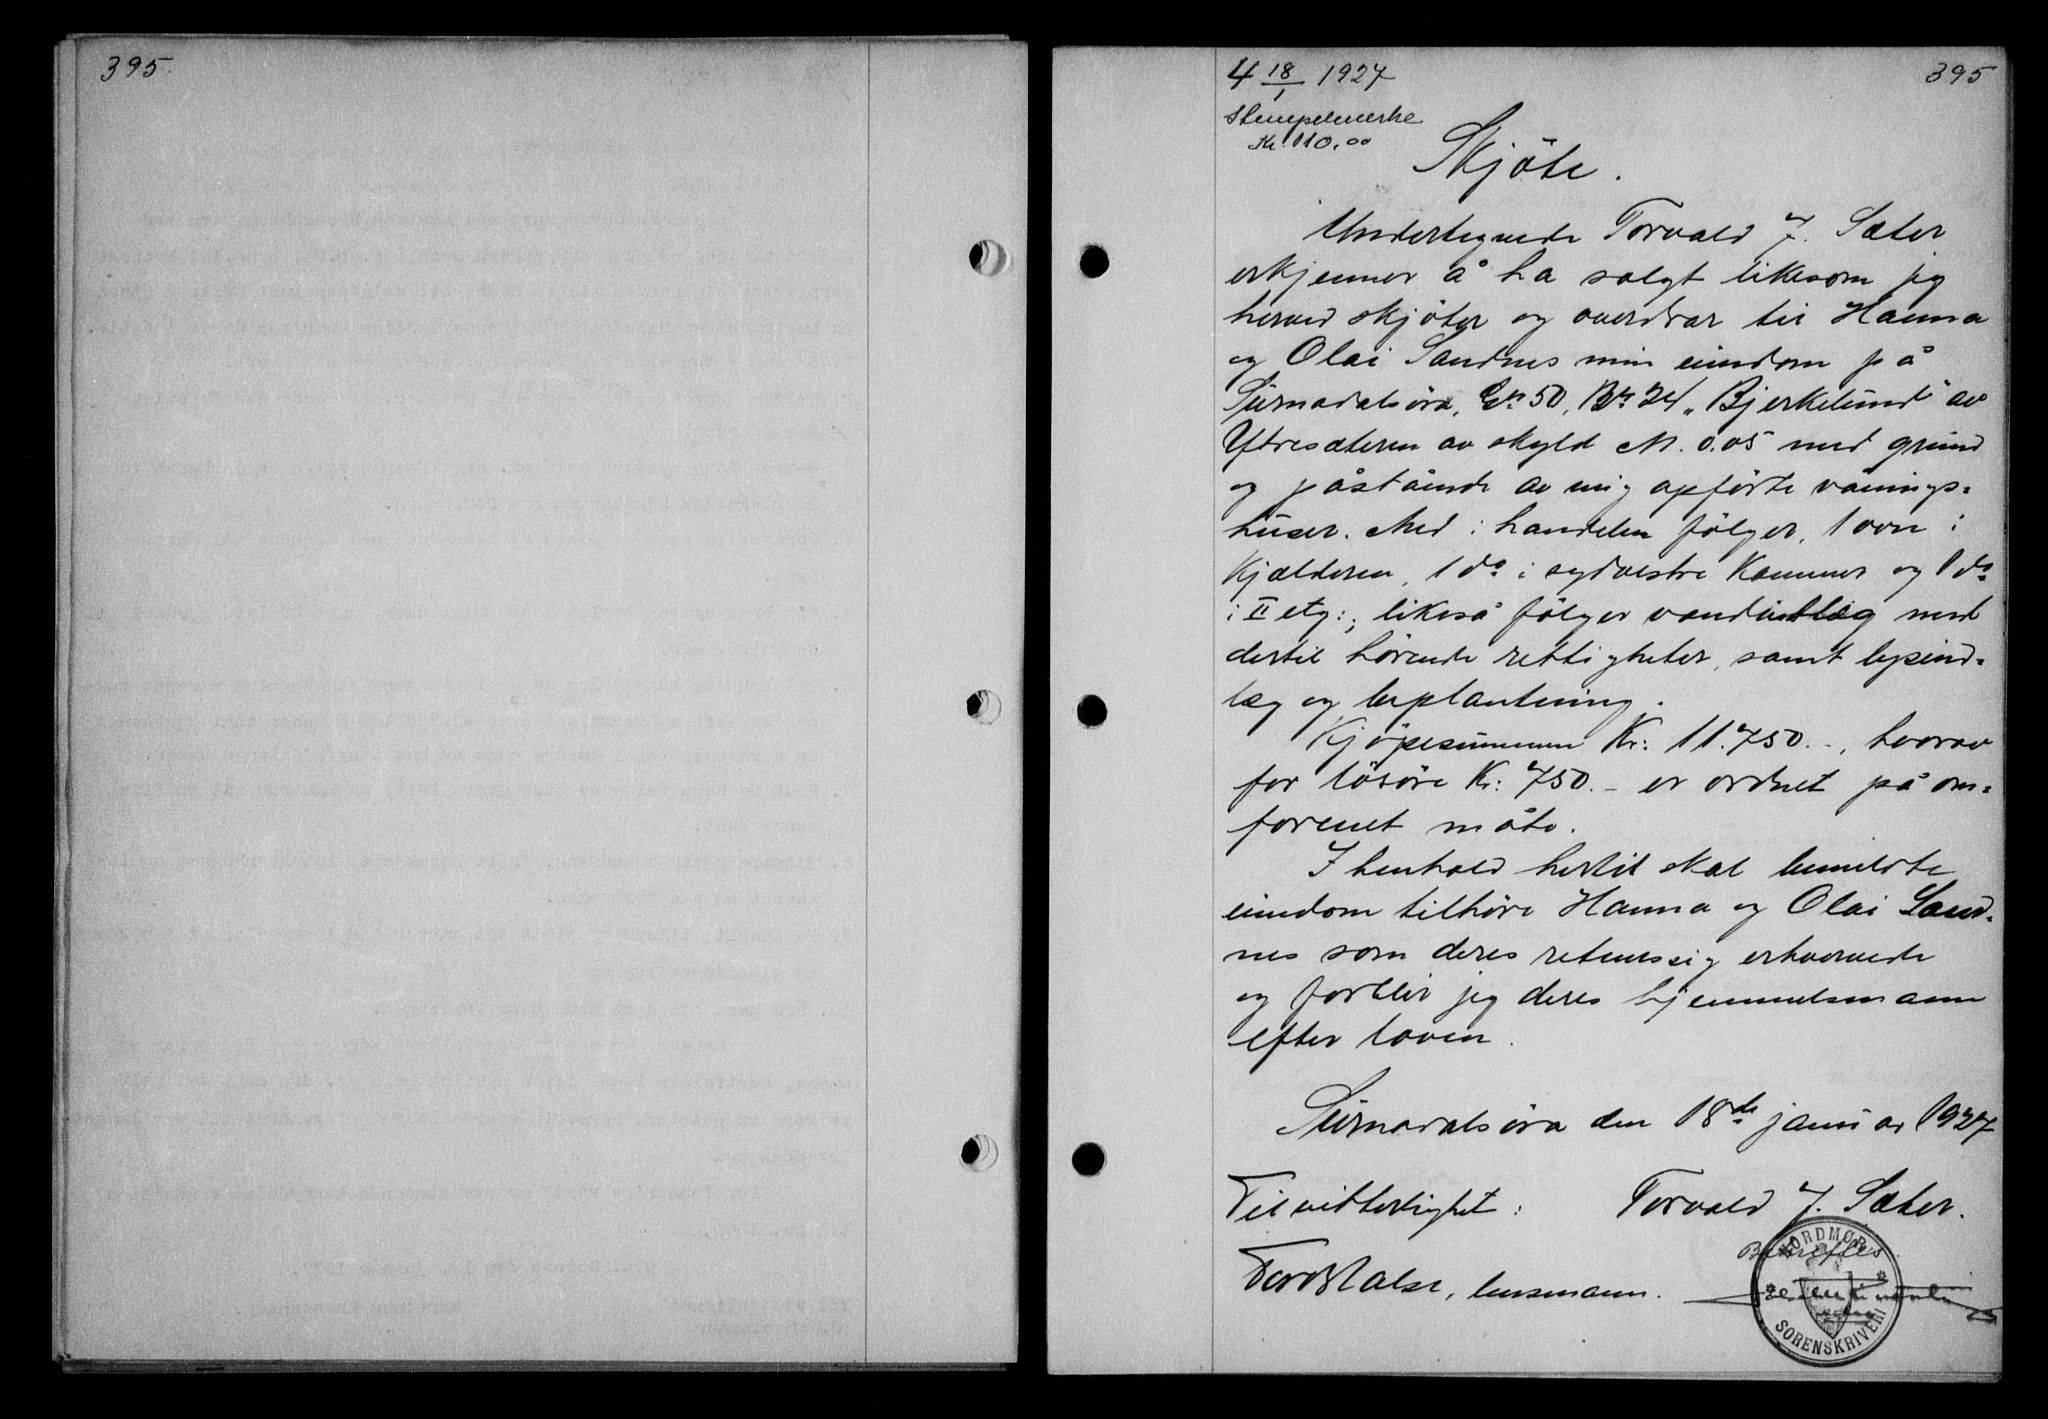 395.
4 18/1 1927
395
Stempelmerke
Kr. 110.00
Skjöte.
Undertegnede Torvald J. Sæter
erkjenner å ha solgt likesom jeg
herved skjöter og overdrar til Hanna
og Olai Sandnes min eiendom på
Surnadalsøra, Gn 50, Bn 24 „Bjerkelund" av
Ytresæteren av skyld M. 0.05 med grund
og påstående av mig opförte vånings=
huser. Med i handelen fölger, 1 ovn i
Kjælderen, 1 do i sydvestre Kammer og 1 do
i II etg:, likeså fölger vandindlæg med
dertil hörende rettigheter, samt lysind=
læg og beplantning.
Kjöpesummen Kr: 11.750.-, hvorav
for lösöre Kr: 750.- er ordnet på om=
forenet måte.
I henhold hertil skal bemeldte
eiendom tilhöre Hanna og Olai Sand=
nes som deres retmessig erhvervede
og forblir jeg deres hjemmelsmann
efter loven.
Surnadalsøra den 18de januar 1927
Til vitterlighet: Torvald J. Sæter.
Tord Halse, lensmann.
Bekreftes
NORDMØR
SORENSKRIVERI